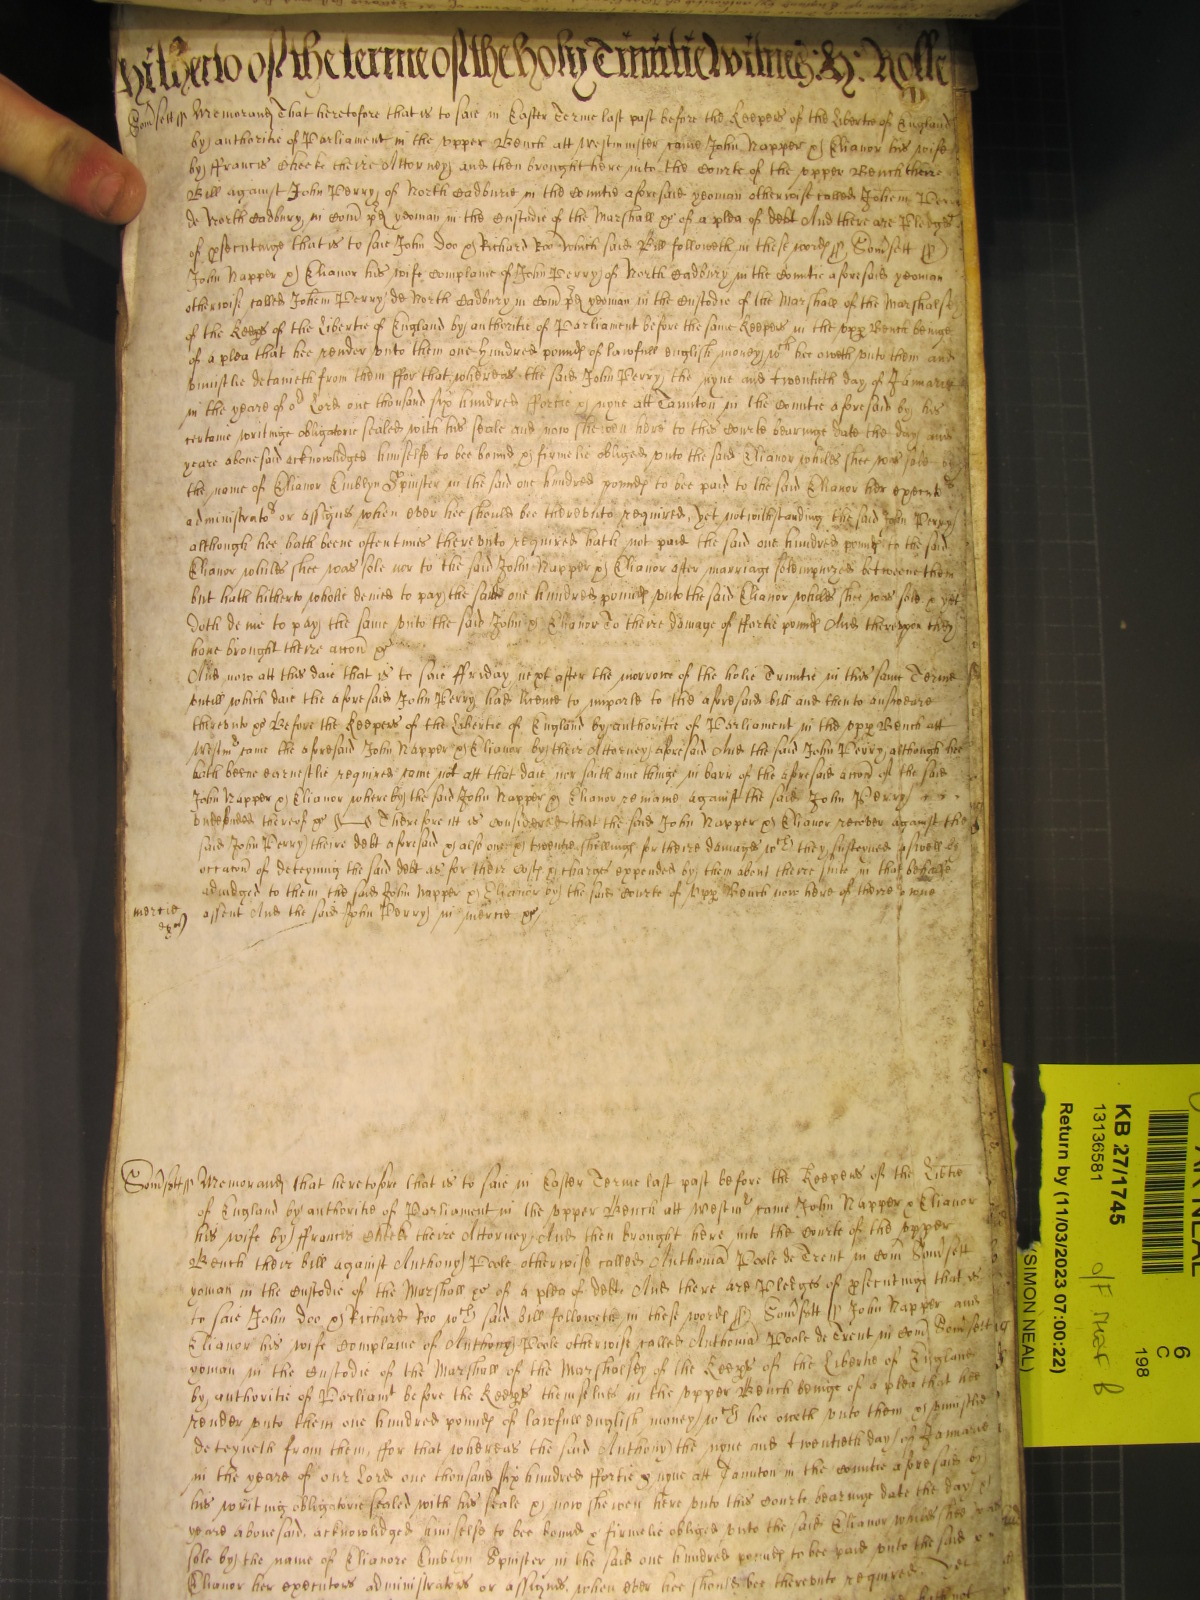 Hitherto of the terme of the holy Trinitie Witnes: H: Rolle
Somsett ss Memorand That heretofore that is to saie in Easter Terme last past before the Keepers of the libertie of England
by authoritie of Parliament in the upper Bench att Westminster came John Napper & Elianor his wife
by Francis Cheeke theire Attorney and then brought here into the Courte of the upper Bench theire
Bill against John Perry of North Cadburie in the Countie aforesaid yeoman otherwise called Johem Perry
de North Cadbury in Com pd yeoman in the Custodie of the Marshall &c of a plea of debt And there are Pledges
of psecutinge that is to saie John Doo & Richard Roo Which said Bill followeth in these words ss Somsett ss
John Napper & Elianor his wife Complaine of John Perry of North Cadbury in the Countie aforesaid yeoman
otherwise called Johem Perry de North Cadbury in Com pd yeoman in the Custodie of the Marshall of the Marshalsey
of the Keeps of the Libertie of England by authoritie of Parliament before the same Keepers in the upp Bench beinge
of a plea that hee render unto them one hundred pounds of lawfull english money wch hee oweth unto them and
uniustlie detaineth from them ffor that whereas the said John Perry the nyne and twentieth day of January
in the yeare of or Lord one thousand six hundred ffortie & nyne att Taunton in the Countie aforesaid by his
certaine writinge obligatorie sealed with his seale and now shewen here to this Courte bearinge date the day and
yeare abovesaid acknowledged himselfe to bee bound & firmelie obliged unto the said Elianor whiles shee was sole by
the name of Elianor Emblyn Spinster in the said one hundred pounds to bee paid to the said Elianor her executors
administrators or assigns when ever hee should bee thereunto required, yet notwithstanding the said John Perry
although hee hath beene oftentimes thereunto required hath not paid the said one hundred pounds to the said
Elianor whiles shee was sole nor to the said John Napper & Elianor after marriage solempnized betweene them
but hath hitherto wholie denied to pay the said one hundred pounds unto the said Elianor whiles shee was sole & yet
doth denie to pay the same unto the said John & Elianor To theire damage of ffortie pounds And thereupon they
have brought theire accon &c
And now att this daie that is to saie ffriday next after the morrowe of the holie Trinitie in this same Terme
untill which daie the aforesaid John Perry had licence to imparle to the aforesaid bill and then to answeare
thereunto &c Before the Keepers of the Libertie of England by authoritie of Parliament in the upp Bench att
Westmr came the aforesaid John Napper & Elianor by their Attorney aforesaid And the said John Perry although hee
hath beene earnestlie required came not att that daie nor saith anie thinge in barr of the aforesaid accon of the said
John Napper & Elianor whereby the said John Napper & Elianor remaine against the said John Perry
undefended thereof &c Therefore itt is considered that the said John Napper & Elianor recover against the
said John Perry theire debt aforesaid & also one & twentie shillings for theire damages wch they susteyned aswell by
occacon of deteyning the said debt as for their Costs & charges expended by them about theire suite in that behalfe
adiudged to them the said John Napper & Elianor by the said Courte of upp Bench now here of theire owne
mercie assent And the said John Perry in mercie &c
Somsett ss Memorand that heretofore that is to saie in Easter Terme last past before the Keepers of the Libtie
of England by authoritie of Parliament in the upper Bench att Westmr came John Napper & Elianor
his wife by Francis Cheeke theire Attorney And then brought here into the Courte of the upper
Bench their bill against Anthony Poole otherwise called Anthoniu Poole de Trent in Com Somsett
yoman in the Custodie of the Marshall &c of a plea of debt And there are Pledges of psecutinge that is
to saie John Doo & Richard Roo wch said bill followeth in these words ss Somsett ss John Napper and
Elianor his wife Complaine of Anthony Poole otherwise called Anthoniu Poole de Trent in Com Somsett
yoman in the Custodie of the Marshall of the Marshalsey of the Keeps of the Libertie of England
by authoritie of Parliamt before the Keeps themselves in the upper Bench beinge of a plea that hee
render unto them one hundred pounds of lawfull english money wch hee oweth unto them & uniustlie
deteyneth from them, ffor that whereas the said Anthony the nyne and twentieth day of Januarie
in the yeare of our Lord one thousand six hundred ffortie & nyne att Taunton in the Countie aforesaid by
his writinge obligatorie sealed with his seale & now shewen here unto this Courte bearinge date the day &
yeare abovesaid, acknowledged himselfe to bee bound & firmelie obliged unto the said Elianor whiles shee was
sole by the name of Elianore Emblyn Spinster in the said one hundred pounds to bee paid unto the said
Elianor her executors administrators or assignes, when ever hee should bee thereunto required. Yet
KB 27/1745
13136581
Return by (11/03/2023 07:00:22)
(SIMON NEAL)
6
C
198